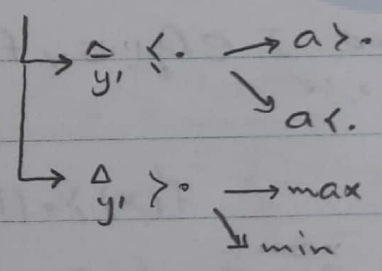 → Δy' ≤ 0 → a > 0
↘ a < 0
→ Δy' > 0 → max
↘ min